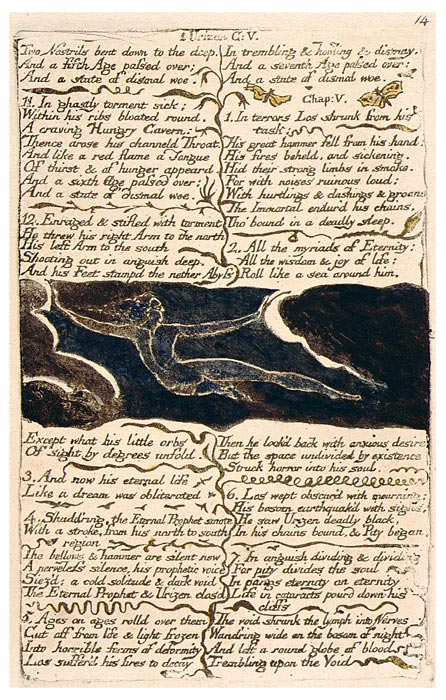 Urizen C: V.
14
Two Nostrils bent down to the deep.
And a fifth Age passed over:
And a state of dismal woe.
11. In ghastly torment sick;
Within his ribs bloated round,
A craving Hungry Cavern;
Thence arose his channeld Throat,
And like a red flame a Tongue
Of thirst & of hunger appeard
And a sixth Age passed over:
And a state of dismal woe.
12. Enraged & stifled with torment
He threw his right Arm to the north
His left Arm to the south
Shooting out in anguish deep,
And his Feet stampd the nether Abyss
In trembling & howling & dismay.
And a seventh Age passed over:
And a state of dismal woe.
Chap: V.
1. In terrors Los shrunk from his
task;
His great hammer fell from his hand:
His fires beheld, and sickening,
Hid their strong limbs in smoke.
For with noises ruinous loud;
With hurtlings & clashings & groans
The Immortal endur'd his chains,
Tho' bound in a deadly sleep.
2. All the myriads of Eternity:
All the wisdom & joy of life:
Roll like a sea around him,
Except what his little orbs
Of sight by degrees unfold.
3. And now his eternal life
Like a dream was obliterated
4. Shudd'ring, the Eternal Prophet smote
With a stroke, from his north to south
region
The bellows & hammer are silent now
A nerveless silence, his prophetic voice
Siez'd; a cold solitude & dark void
The Eternal Prophet & Urizen clos'd
5. Ages on ages rolld over them
Cut off from life & light frozen
Into horrible forms of deformity
Los suffer'd his fires to decay
Then he look'd back with anxious desire
But the space undivided by existence
Struck horror into his soul.
6. Los wept obscur'd with mourning:
His bosom earthquak'd with sighs;
He saw Urizen deadly black,
In his chains bound, & Pity began,
7. In anguish dividing & dividing
For pity divides the soul
In pangs eternity on eternity
Life in cataracts pourd down his
cliffs
The void shrunk the lymph into Nerves
Wand'ring wide on the bosom of night
And left a round globe of blood
Trembling upon the Void